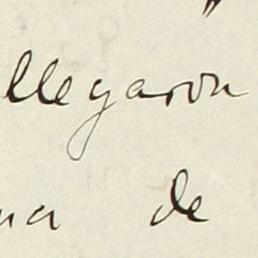 llegaron
na de